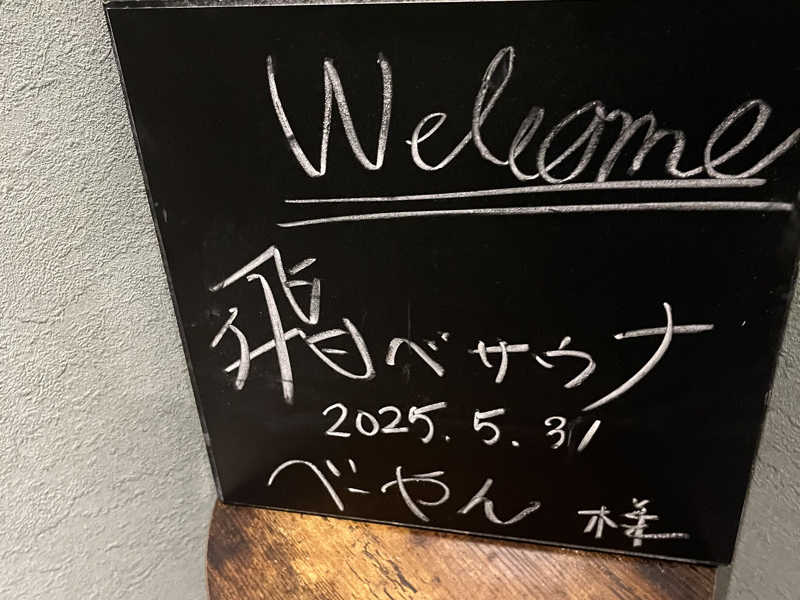 Welcome
飛べサウナ
2025.5.31
べーやん 様